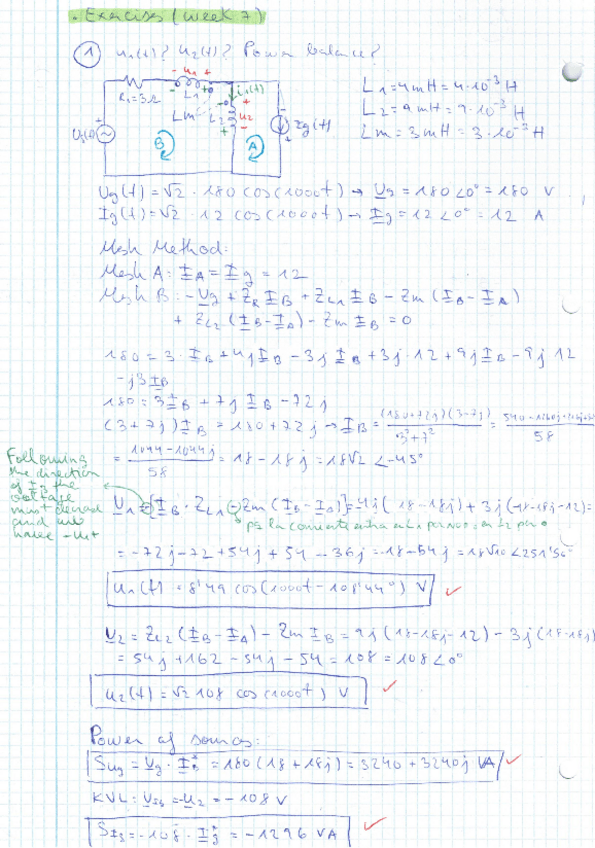 . Exercises (week 7)
1 u1(t)? u2(t)? Power balance?
- u1 +
L1 i1(t)
R1=3Ω Lm L2 u2
Ug(t) B A Ig(t)
L1=4mH=4·10⁻³ H
L2=9mH=9·10⁻³ H
Lm=3mH=3·10⁻³ H
Ug(t)=√2·180 cos(1000t) → Ug=180∠0°=180 V
Ig(t)=√2·12 cos(1000t) → Ig=12∠0°=12 A
Mesh Method:
Mesh A: IA=Ig=12
Mesh B: -Ug+ZR IB+ZL1 IB-Zm(IB-IA)
+ZL2(IB-IA)-Zm IB=0
180=3·IB+4jIB-3jIB+3j·12+9jIB-9j12
-j3IB
180=3IB+7jIB-72j
(3+7j)IB=180+72j → IB=(180+72j)(3-7j)/3²+7²=540-1260j
58
=1044-1044j/58=18-18j=18√2∠-45°
Following
the direction
of IB the
voltage
must
and we
have -u1+
U1=-[IB·ZL1-Zm(IB-IA)]=-4j(18-18j)+3j(18-18j-12)=
=-72j-72+54j+54-36j=-18-54j=18√10∠251'56°
u1(t)=8'49 cos(1000t-108'44°) V
U2=ZL2(IB-IA)-Zm IB=9j(18-18j-12)-3j(18-18j)
=54j+162-54j-54=108=108∠0°
u2(t)=√2 108 cos(1000t) V
Power of sources:
Sug=Ug·IB*=180(18+18j)=3240+3240j VA
KVL: UIg=-U2=-108 V
SIg=-108·Ig*=-1296 VA